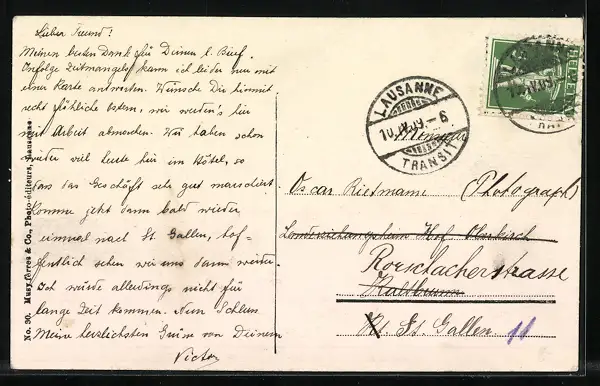 Lieber Freund!
Meinen besten Dank für Deinen l. Brief.
Infolge Zeitmangel kann ich leider nur mit
einer Karte antworten. Wünsche Dir hiermit
recht fröhliche Ostern, wir werden's hier
mit Arbeit abmachen. Wir haben schon
wieder viel Leute hier im Hôtel, so
dass das Geschäft sehr gut marschiert
Komme jetzt dann bald wieder
einmal nach St. Gallen, hof-
fentlich sehen wir uns dann wieder.
Ich würde allerdings nicht für
lange Zeit kommen. Nun Schluss
Meine herzlichsten Grüsse von Deinem
Victor
No. 30. Co., Photo-éditeurs, Lausanne
LAUSANNE
10.IV.09.-6
TRANSIT
LAUSANNE
HELVETIA
Monsieur
Oscar (Photograph)
Hof Oberkirch
Rorschacherstrasse
Kaltbrunn
Kt. St. Gallen 11